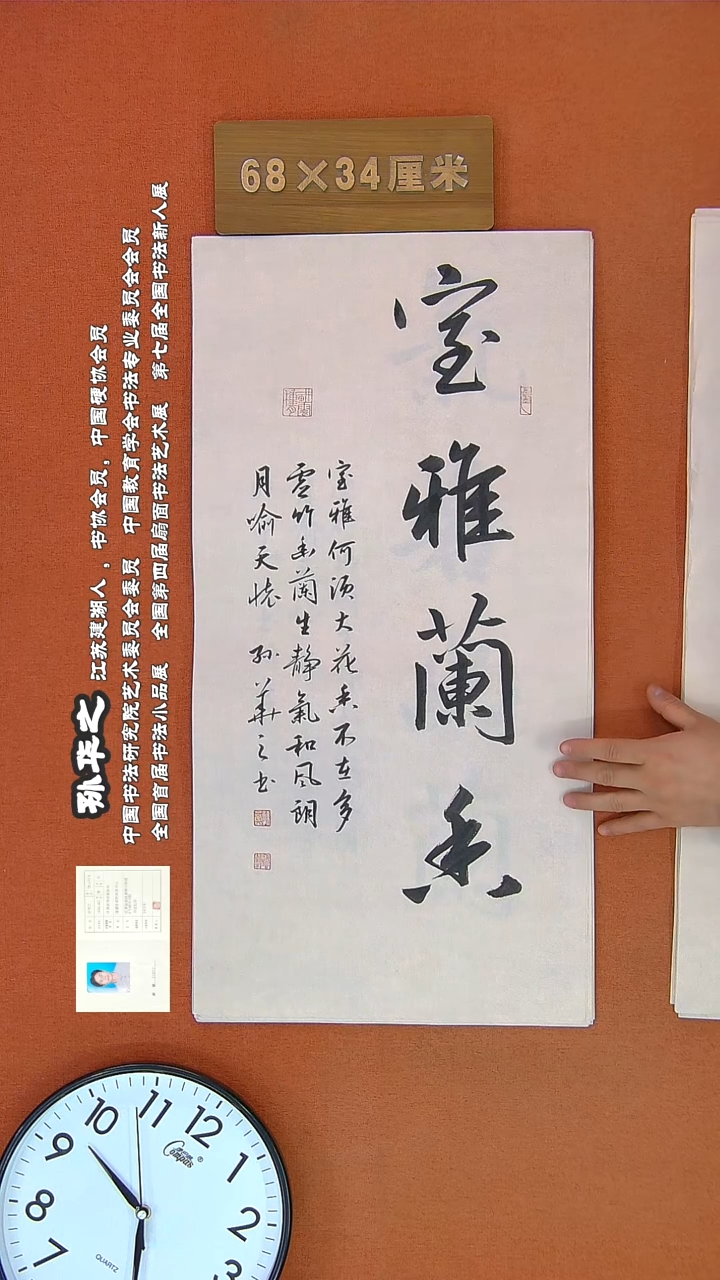 68×34厘米
室雅蘭香
室雅何须大花香不在多
虚竹幽蘭生静氣和風朗
月喻天懷 孙華之书
孙华之 江苏建湖人，书协会员，中国硬协会员
中国书法研究院艺术委员会委员 中国教育学会书法专业委员会会员
全国首届书法小品展 全国第四届扇面书法艺术展 第七届全国书法新人展
10
11
12
1
2
3
9
8
7
Compas
®
QUARTZ